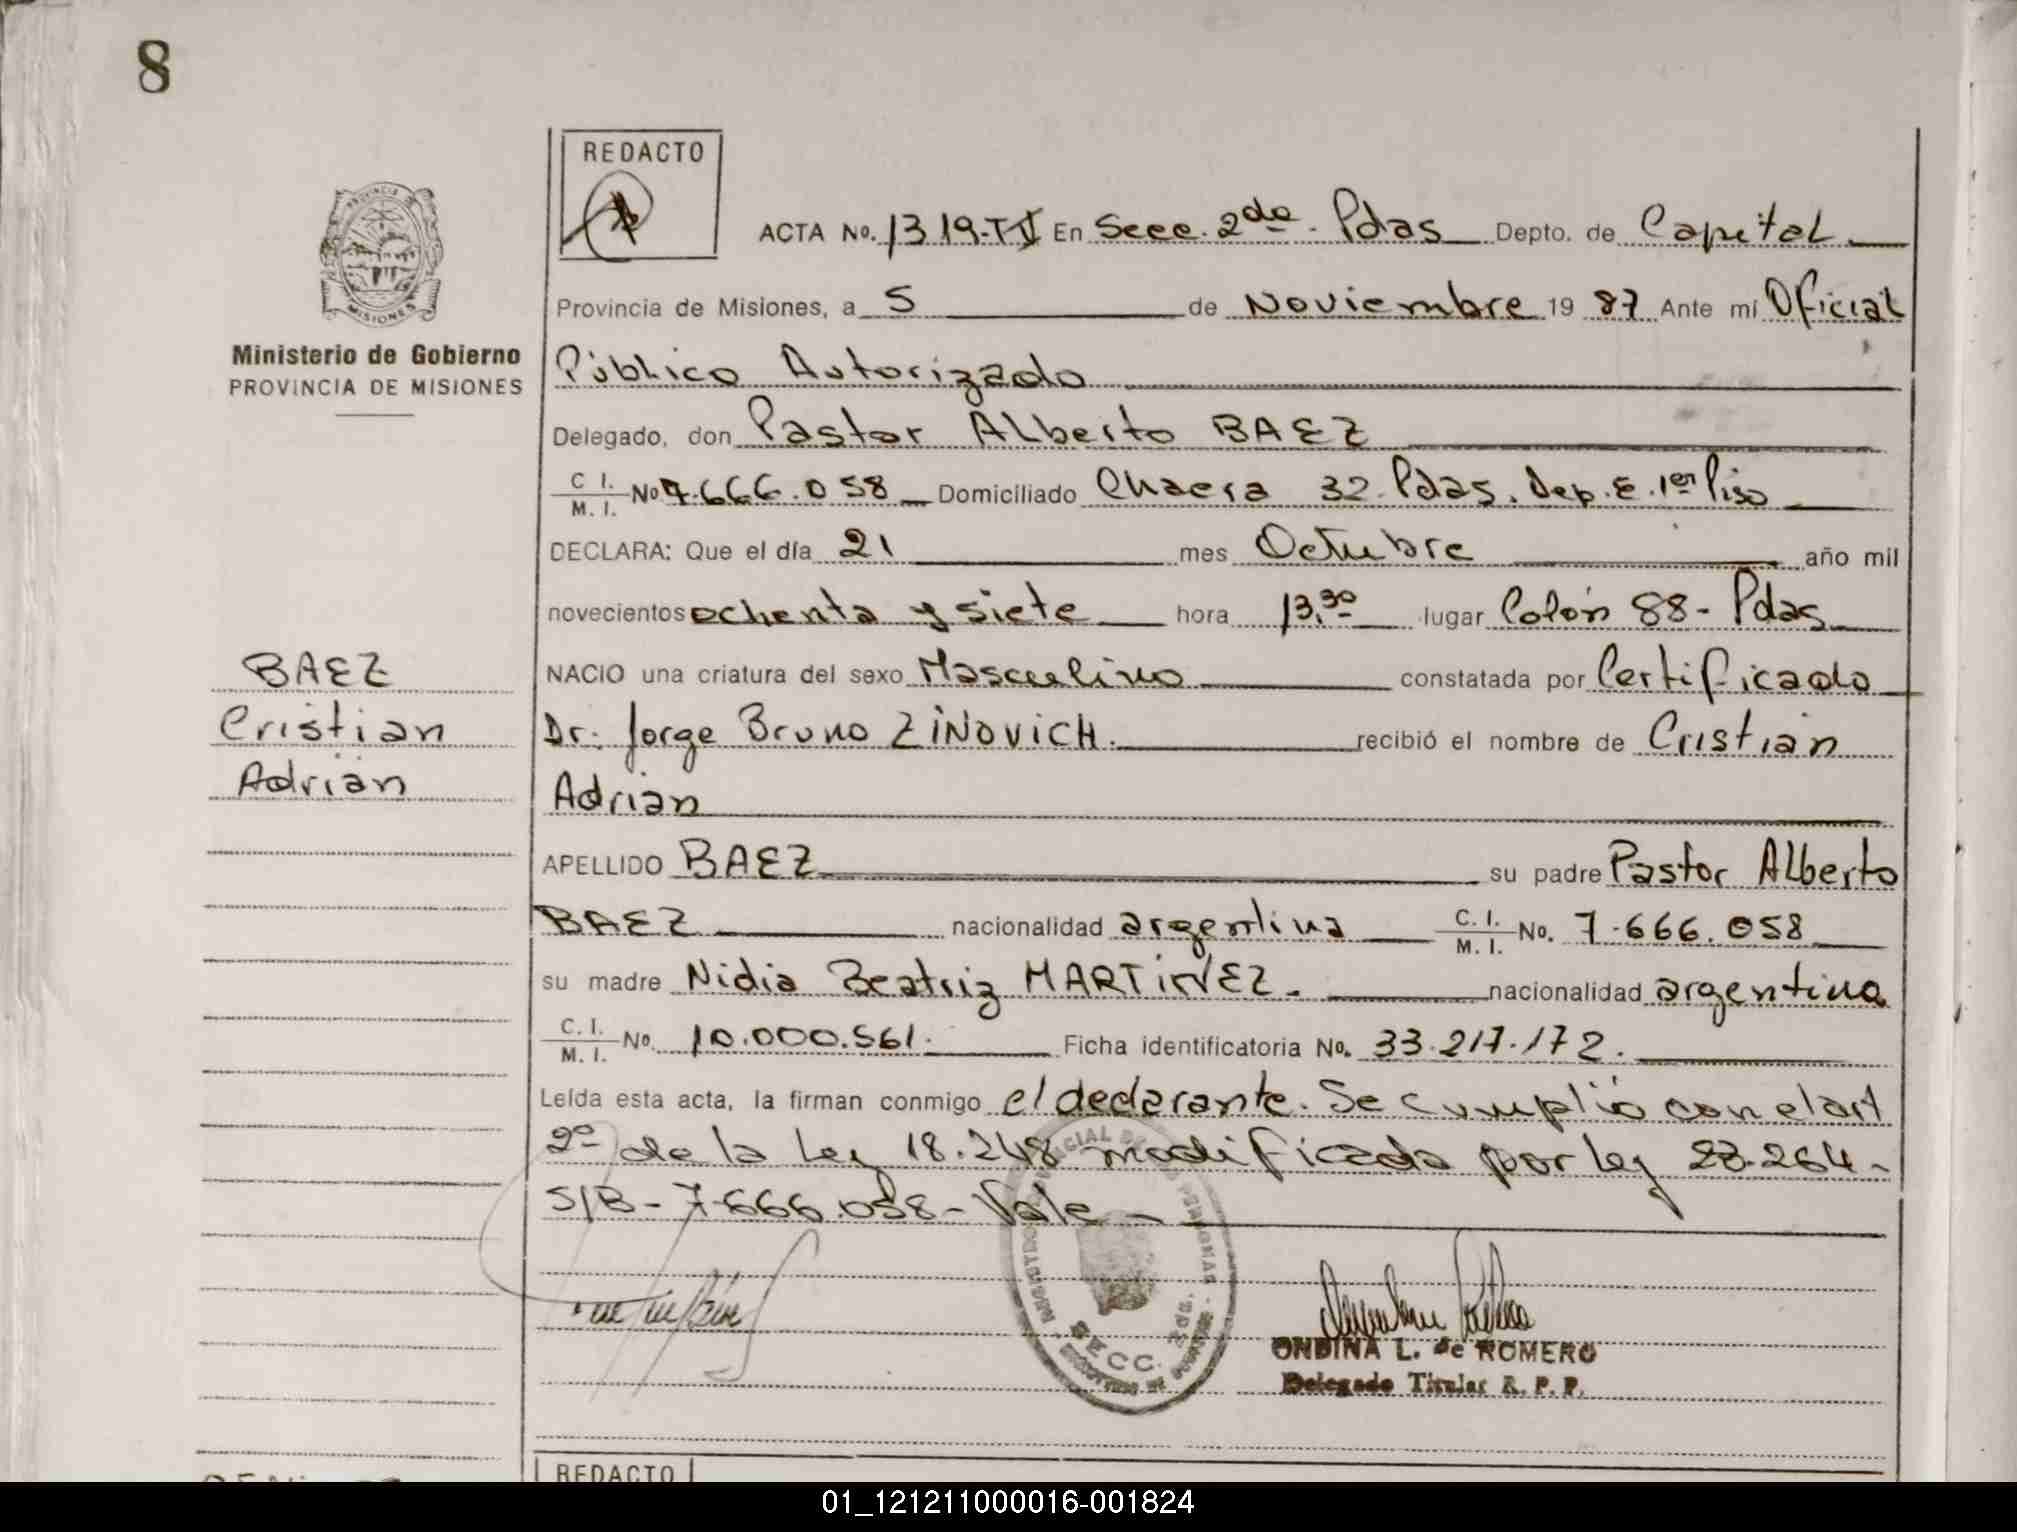 8
REDACTO
ACTA No. 1319-TV En Secc. 2da - Pdas Depto. de Capital
PROVINCIA DE MISIONES
Provincia de Misiones, a 5 de Noviembre 19 87 Ante mí Oficial
Ministerio de Gobierno
PROVINCIA DE MISIONES
Público Autorizado
Delegado, don Pastor Alberto BAEZ
C I. M. I. No 7.666.058 Domiciliado Chacra 32. Pdas. Dep. E. 1er Piso
DECLARA: Que el día 21 mes Octubre año mil
novecientos ochenta y siete hora 13,30 lugar Colón 88- Pdas
BAEZ
Cristian
Adrián
NACIO una criatura del sexo Masculino constatada por Certificado
Dr. Jorge Bruno ZINOVICH. recibió el nombre de Cristian
Adrián
APELLIDO BAEZ su padre Pastor Alberto
BAEZ nacionalidad argentina C. I. M. I. No. 7.666.058
su madre Nidia Beatriz MARTINEZ. nacionalidad argentina
C. I. M. I. No. 10.000.561. Ficha identificatoria No. 33.217.172.
Leída esta acta, la firman conmigo el declarante. Se cumplió con el art
2º de la Ley 18.248 modificada por ley 23.264-
S/B- 7.666.058- Vale-
REGISTRO PROVINCIAL DE LAS PERSONAS
SECC. 2da.
ONDINA L. de ROMERO
Delegado Titular R. P. P.
REDACTO
01_121211000016-001824